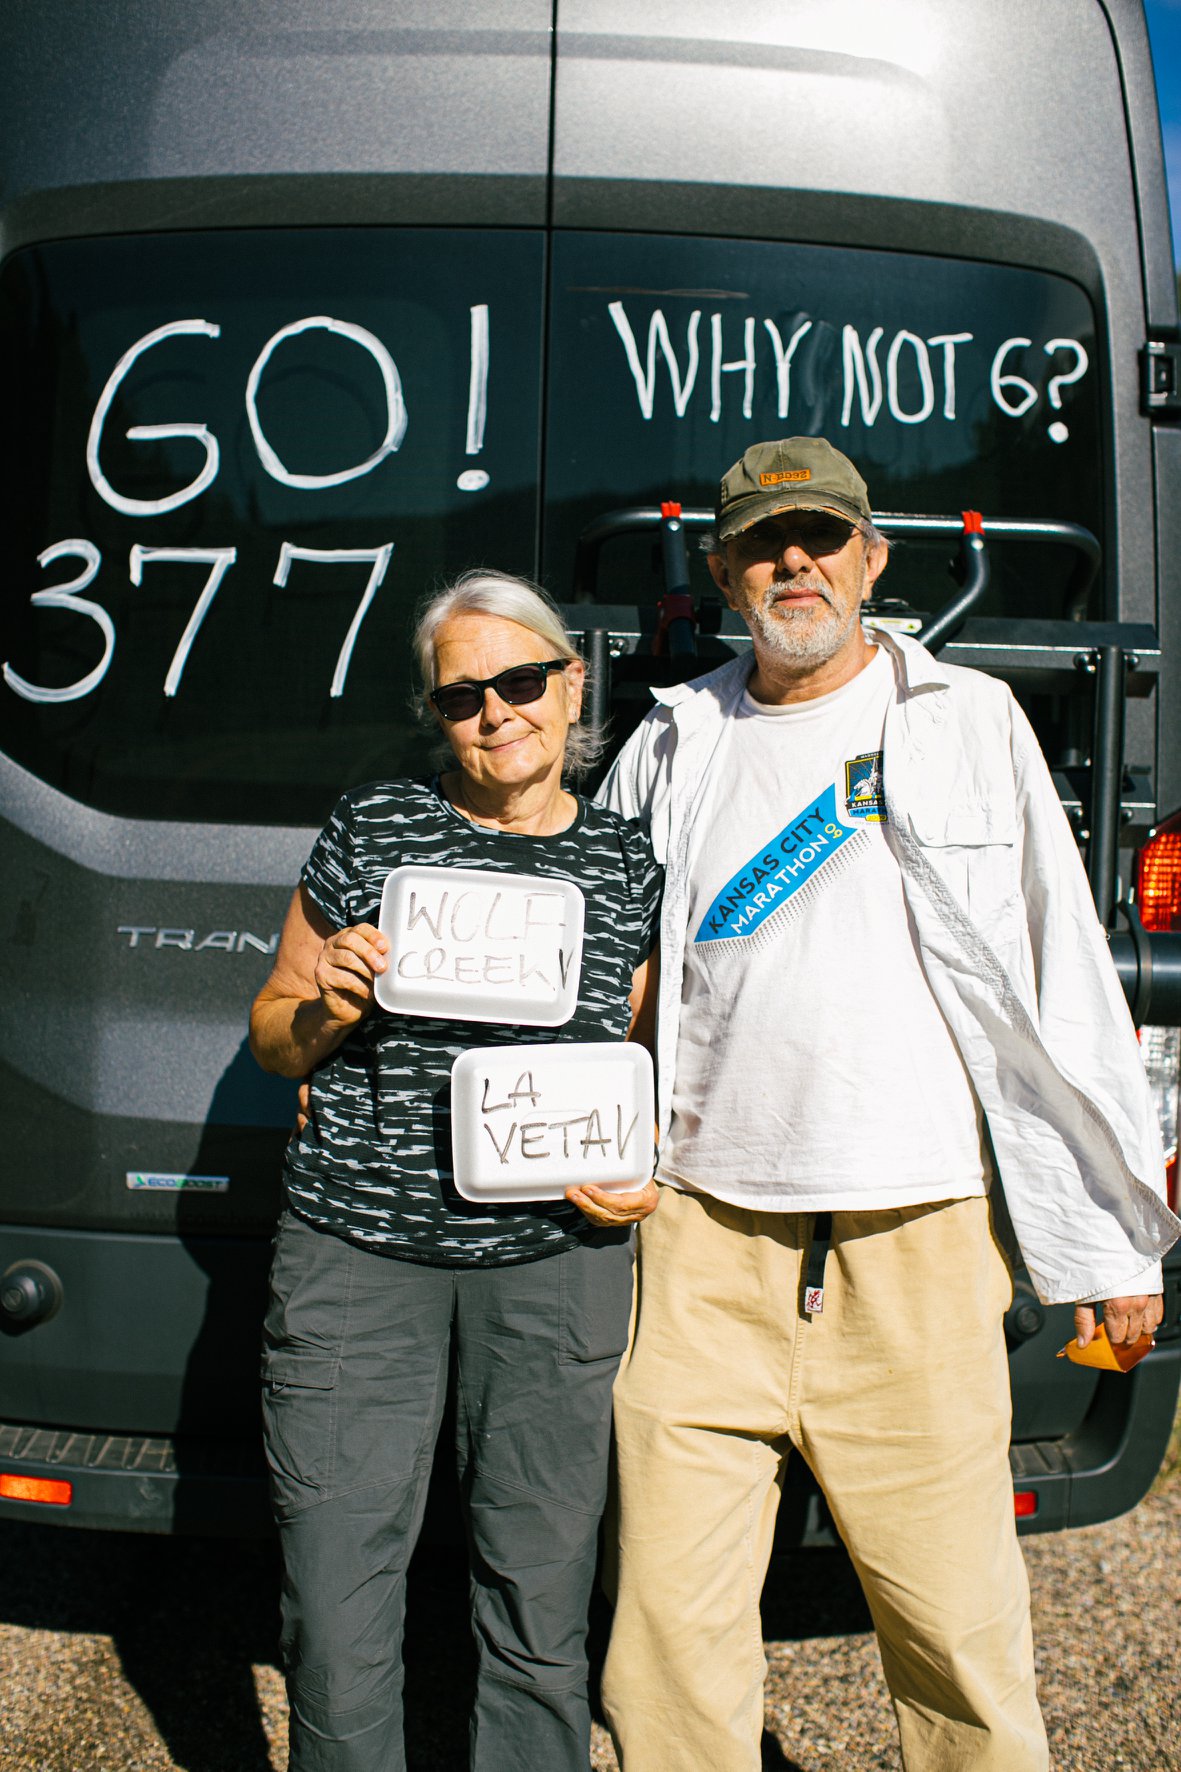 GO!
377
WHY NOT 6?
TRAN
WOLF
CREEK
LA
VETA
KANSAS CITY
MARATHON 09
KANSAS
MARATHON
ECOBOOST